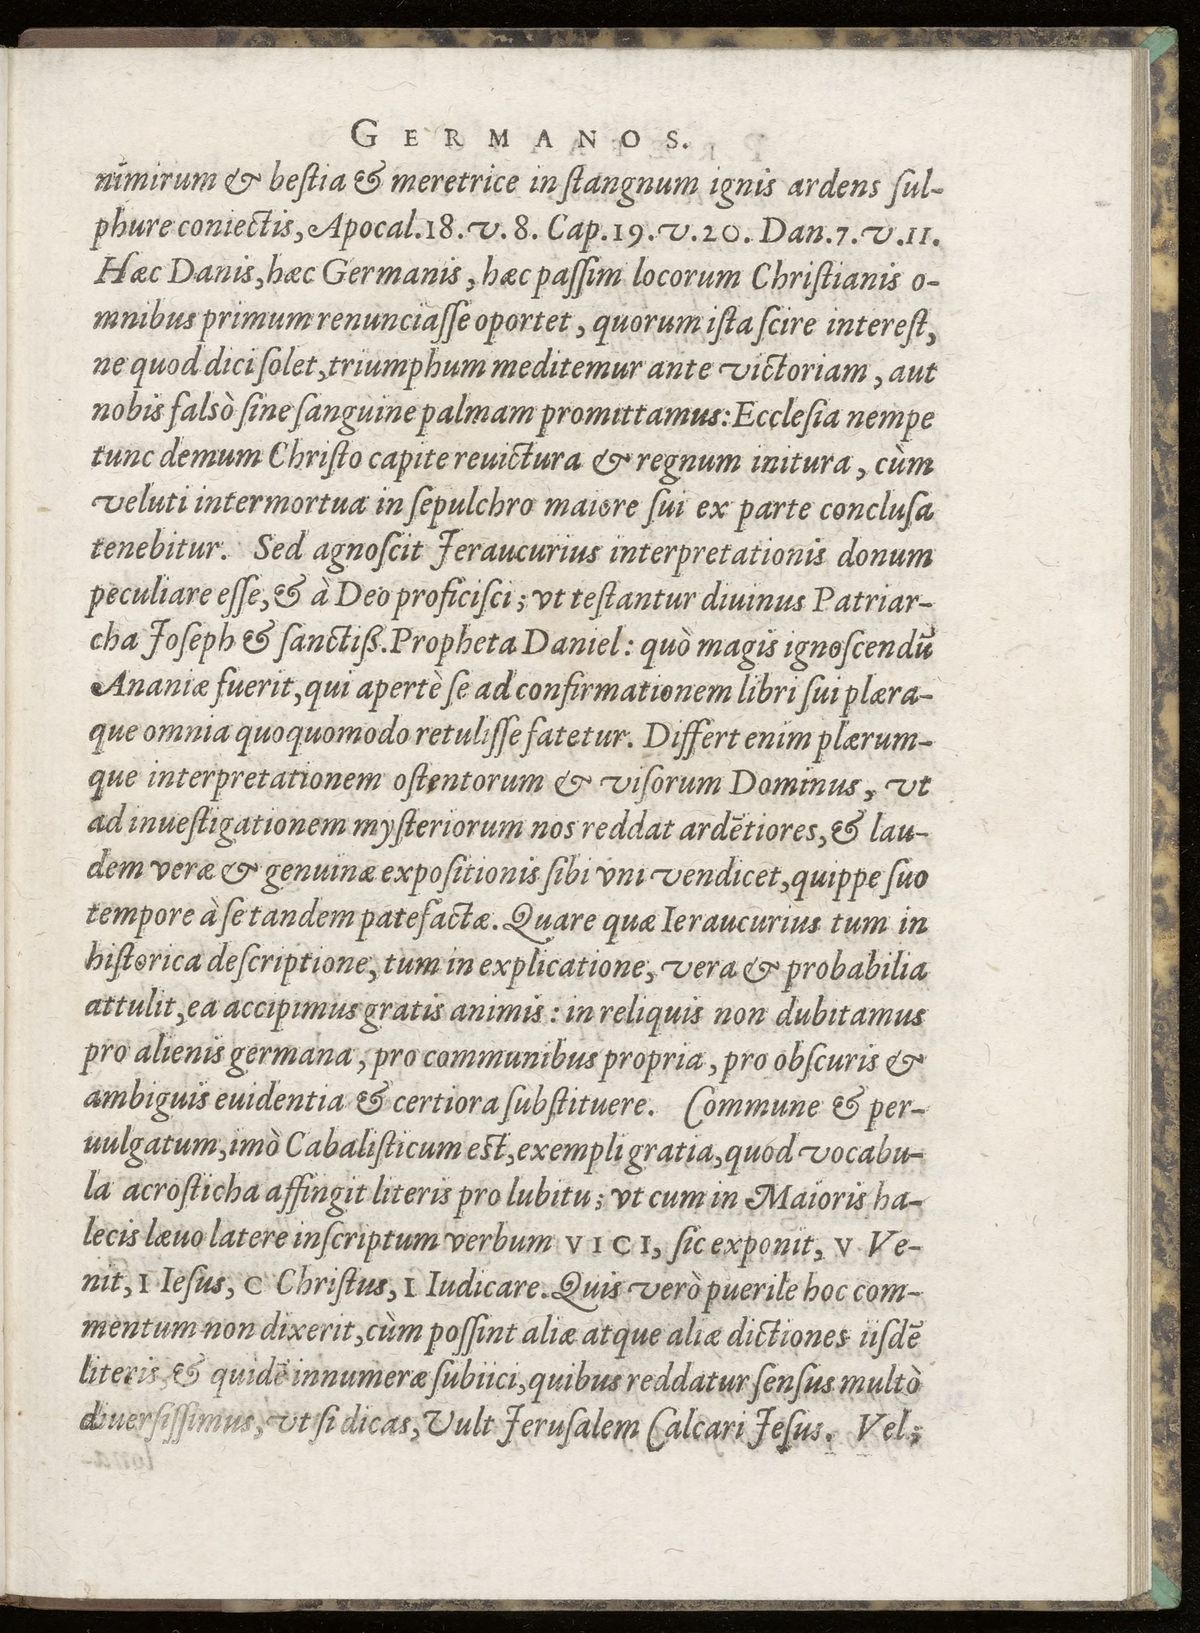 GERMANOS.
nimirum & beſtia & meretrice in ſtangnum ignis ardens ſul-
phure coniectis, Apocal.18.v.8. Cap.19.v.20. Dan.7.v.11.
Hæc Danis, hæc Germanis, hæc paſſim locorum Chriſtianis o-
mnibus primum renunciaſſe oportet, quorum iſta ſcire intereſt,
ne quod dici ſolet, triumphum meditemur ante victoriam, aut
nobis falsò ſine ſanguine palmam promittamus: Eccleſia nempe
tunc demum Chriſto capite reuictura & regnum initura, cùm
veluti intermortua in ſepulchro maiore ſui ex parte concluſa
tenebitur. Sed agnoſcit Jeraucurius interpretationis donum
peculiare eſſe, & à Deo proficiſci; vt teſtantur diuinus Patriar-
cha Joſeph & ſanctiß. Propheta Daniel: quò magis ignoſcendũ
Ananiæ fuerit, qui apertè ſe ad confirmationem libri ſui plæra-
que omnia quoquomodo retuliſſe fatetur. Differt enim plærum-
que interpretationem oſtentorum & viſorum Dominus, vt
ad inueſtigationem myſteriorum nos reddat ardētiores, & lau-
dem veræ & genuinæ expoſitionis ſibi vni vendicet, quippe ſuo
tempore à ſe tandem patefactæ. Quare quæ Ieraucurius tum in
hiſtorica deſcriptione, tum in explicatione, vera & probabilia
attulit, ea accipimus gratis animis: in reliquis non dubitamus
pro alienis germana, pro communibus propria, pro obſcuris &
ambiguis euidentia & certiora ſubſtituere. Commune & per-
uulgatum, imò Cabaliſticum eſt, exempli gratia, quod vocabu-
la acroſticha affingit literis pro lubitu; vt cum in Maioris ha-
lecis læuo latere inſcriptum verbum VICI, ſic exponit, V Ve-
nit, I Ieſus, C Chriſtus, I Iudicare. Quis verò puerile hoc com-
mentum non dixerit, cùm poſſint aliæ atque aliæ dictiones iiſdē
literis, & quidē innumeræ ſubiici, quibus reddatur ſenſus multò
diuerſiſſimus, vt ſi dicas, Vult Jeruſalem Calcari Jeſus. Vel;